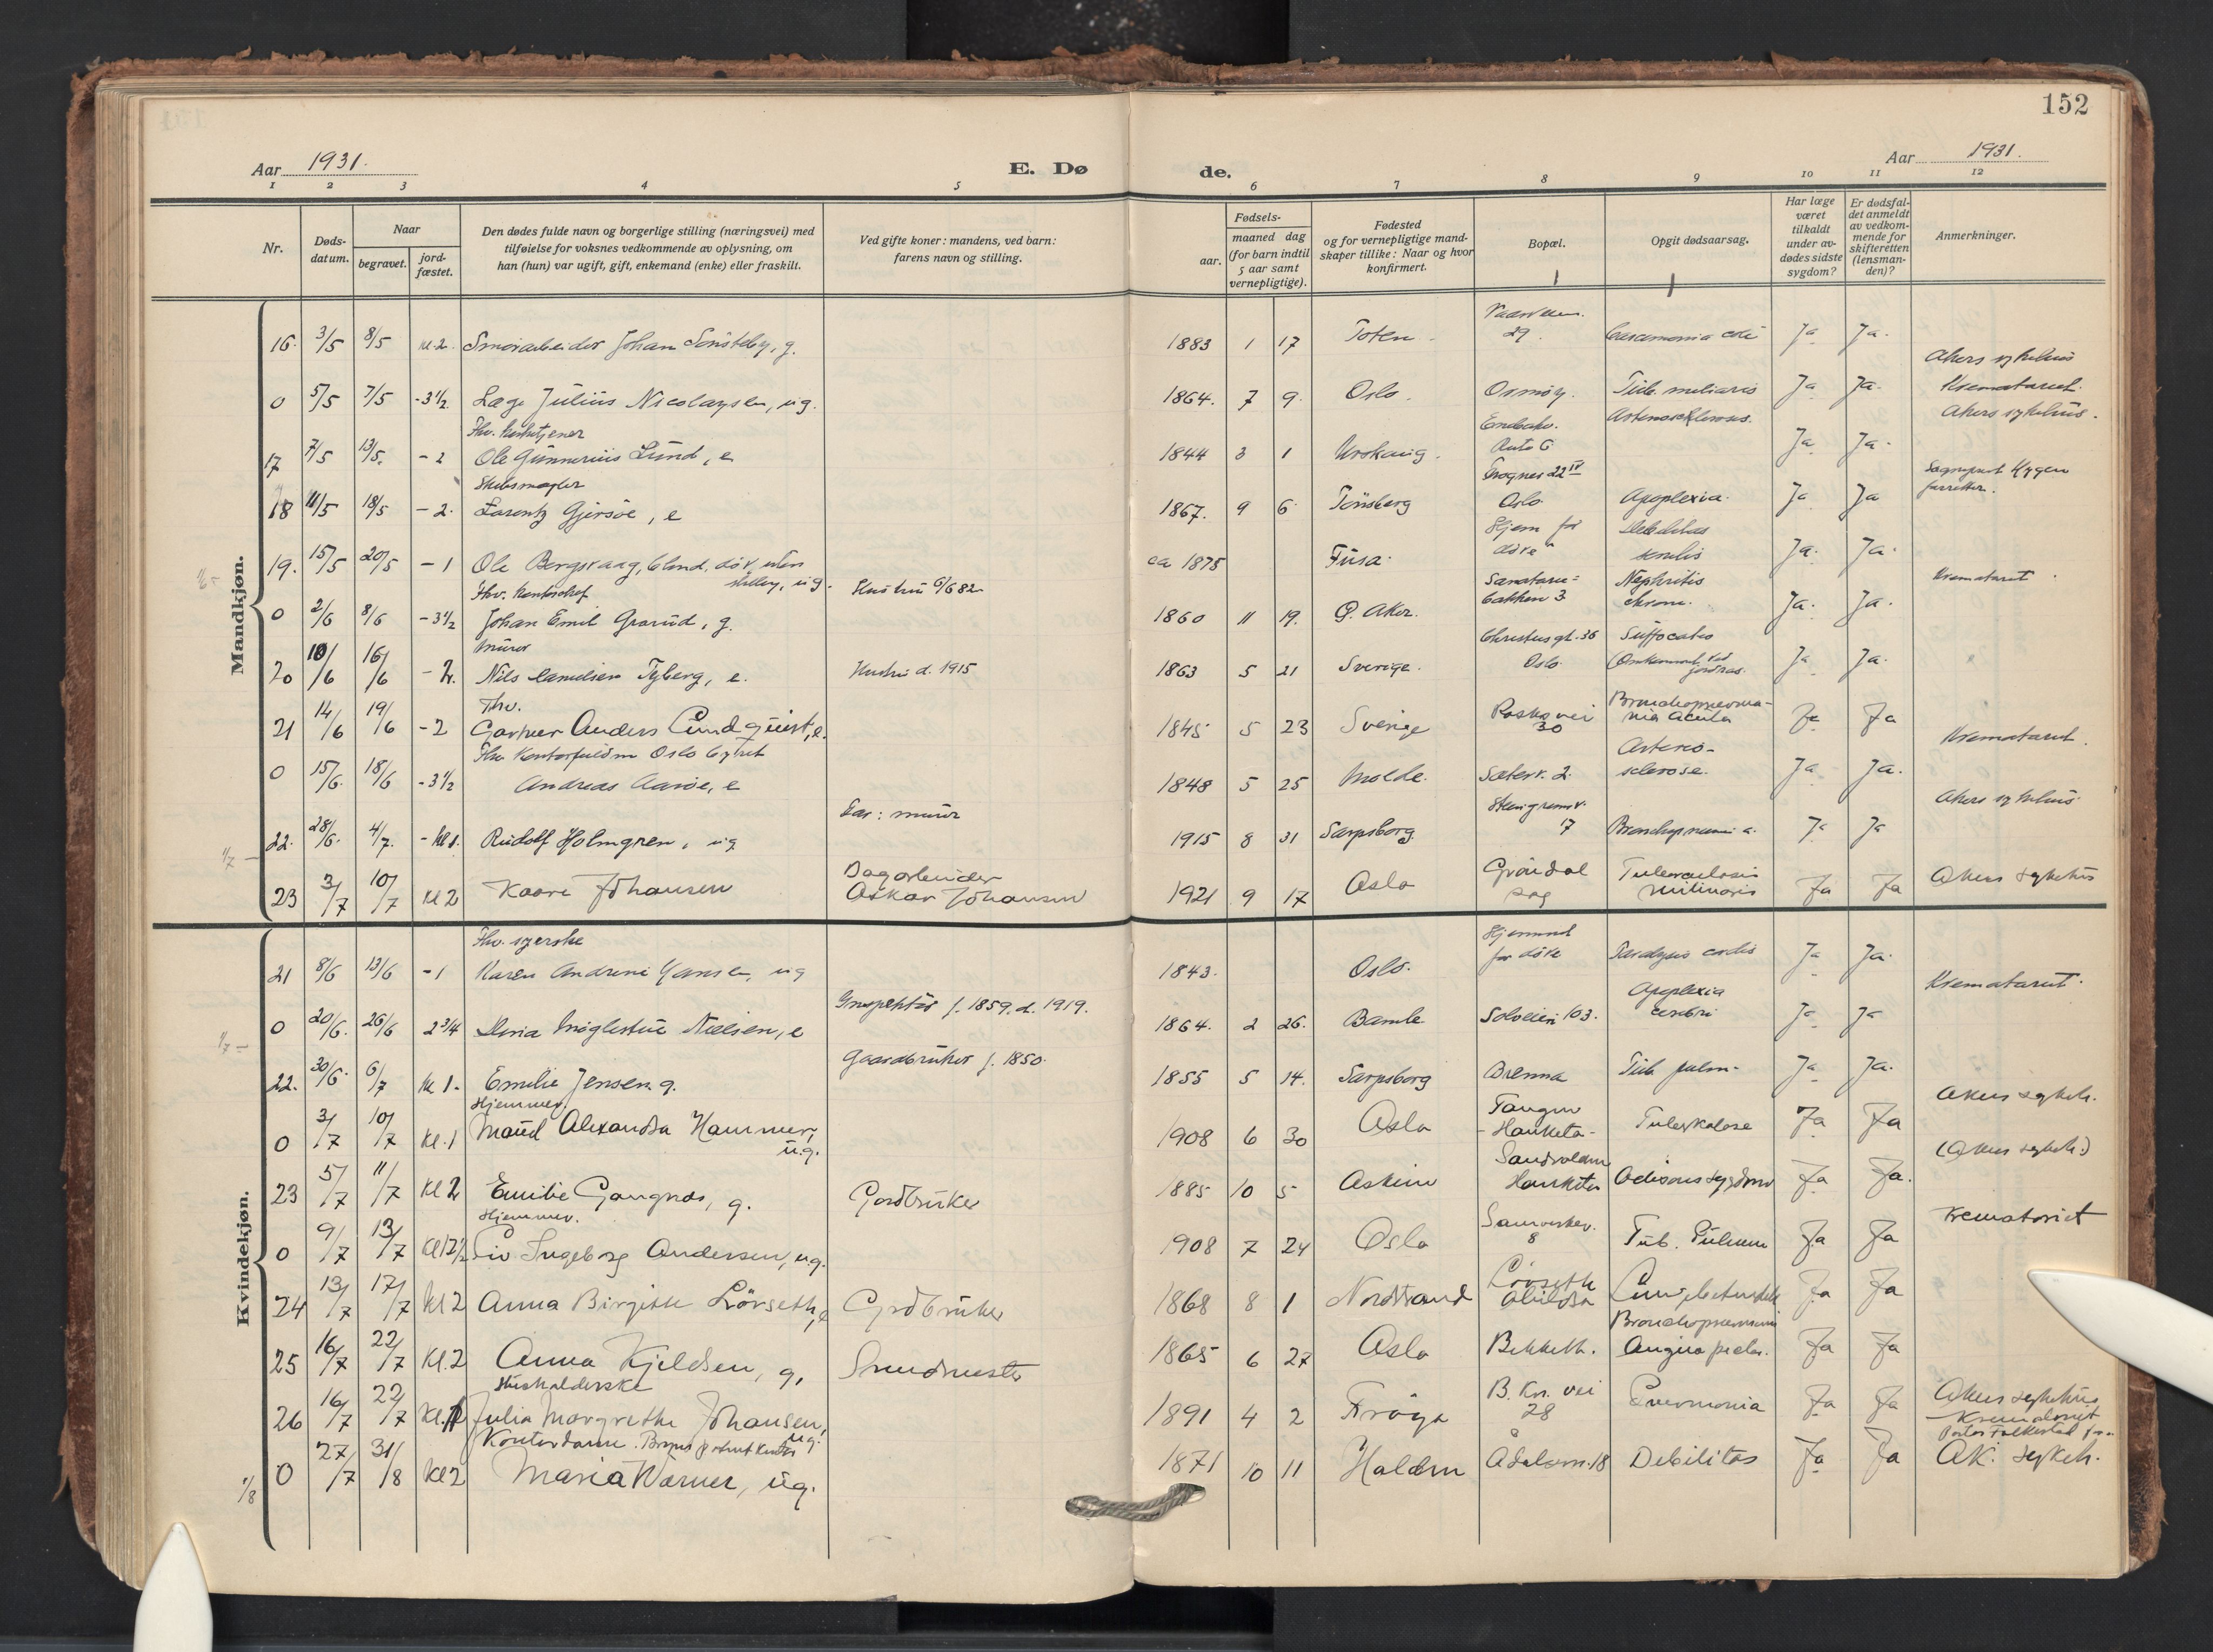 152
Aar 1931.
E. Dø
de.
Aar 1931.
1 2 3 4 5 6 7 8 9 10 11 12
Nr.
Døds-
datum.
Naar
begravet.
jord-
fæstet.
Den dødes fulde navn og borgerlige stilling (næringsvei) med
tilføielse for voksnes vedkommende av oplysning, om
han (hun) var ugift, gift, enkemand (enke) eller fraskilt.
Ved gifte koner: mandens, ved barn:
farens navn og stilling.
Fødsels-
aar.
maaned dag
(for barn indtil
5 aar samt
vernepligtige).
Fødested
og for vernepligtige mand-
skaper tillike: Naar og hvor
konfirmert.
Bopæl.
Opgit dødsaarsag.
Har læge
været
tilkaldt
under av-
dødes sidste
sygdom?
Er dødsfal-
det anmeldt
av vedkom-
mende for
skifteretten
(lensman-
den)?
Anmerkninger.
Mandkjøn.
16. 3/5 8/5 kl. 2. Johan Sønsteby, g. 1883 1 17 Toten. 29. Ja Ja.
Akers sykehus
0 5/5 7/5 - 3 1/2. Læge Julius Nicolaysen, ug. 1864. 7 9. Oslo. Ormøy. Tub. miliaris Ja Ja. Krematoriet.
Akers sykehus.
17 7/5 13/5. - 2 Ole Gunnerius Lund, e 1844 3 1 Urskaug. Ja Ja.
Skibsmægler
18 11/5 18/5 - 2. Lorentz Gjersøe, e 1867. 9 6. Tønsberg Oslo Apoplexia. Ja Ja
Hjem for
19. 15/5 20/5 - 1 Ole Bergsvaag, blind, døv, uten
stilling, ug. ca 1875 Fusa. døve senilis Ja. Ja.
Fhv. kontorchef Hustru 6/6 82 Nephritis Krematoriet
0 2/6 8/6 - 3 1/2 Johan Emil Grorud, g. 1860 11 19. Ø. Aker. bakken 3 chron. Ja. Ja.
murer Suffocatio
20 10/6 16/6 - 2. Nils Danielsen Tyberg, e. Hustru d. 1915 1863 5 21 Sverige. Oslo. Ja Ja.
Fhv.
21 14/6 19/6 - 2 Gartner Anders Lundquist, e. 1845 5 23 Sverige 30 Ja Ja
Arterio-
Krematoriet.
0 15/6. 18/6 - 3 1/2 Andreas Aarøe, e 1848 5 25 Molde. Sæterv. 2. sclerose. Ja Ja.
Far: murer
Akers sykehus.
1/7 - 22. 28/6. 4/7. - kl 1. Rudolf Holmgren, ug 1915 8 31 Sarpsborg 17 Ja Ja
Dagarbeider
23 3/7 10/7 kl 2 Kaare Johansen Oskar Johansen 1921 9 17 Oslo Tuberculosis
miliaris Ja Ja Akers sykehus
Kvindekjøn.
Fhv. syerske
21 8/6 13/6 - 1 Karen Andrine Hansen, ug 1843. Oslo. Hjemmet
for døve Paralysis cordis Ja Ja.
Inspektør f. 1859. d. 1919. Apoplexia Krematoriet.
1/7 - 0 20/6. 26/6 2 3/4 Nielsen, e 1864. 2 26. Bamle Solveien 103. cerebri Ja Ja
Gaardbruker f. 1850.
22. 30/6. 6/7 kl 1. Emilie Jensen g. 1855 5 14. Sarpsborg Brenna Tub. pulm. Ja Ja.
Hjemmev. Akers sykeh.
0 3/7 10/7 kl. 1 Maud Alexandra Hammer,
ug. 1908 6 30 Oslo Tuberkulose Ja Ja
(Akers sykeh.)
23 5/7 11/7 kl 2 Emilie Gangnes, g. Gårdbruker 1885 10 5 Askim Hauketo Adisons sygdom Ja Ja.
Hjemmev. Krematoriet
0 9/7 13/7 kl 12 1/2 Liv Ingeborg Andersen, ug. 1908 7 24 Oslo 8 Tub. Pulmm Ja Ja
24 13/7 17/7 kl 2 Anna Birgitte Lørseth, e Gårdbruker 1868 8 1 Nordstrand Lørseth
Abildsø Ja Ja
25 16/7 22/7 kl. 2 Anna Kjeldsen, g. Smedmester 1865 6 27 Oslo Bekkelh. Angina pector. Ja Ja
Husholderske
26 16/7 22/7 kl. 1 Julia Margrethe Johansen,
ug. 1891 4 2 Frøya B. Kn. vei
28 Pneumonia Ja Ja Akers sykehus
Krematoriet
Kontordame.
1/8 0 27/7 31/8 kl 2 Maria Warner, ug. 1871 10 11 Halden 18 Debilitas Ja Ja Ak. sykeh.